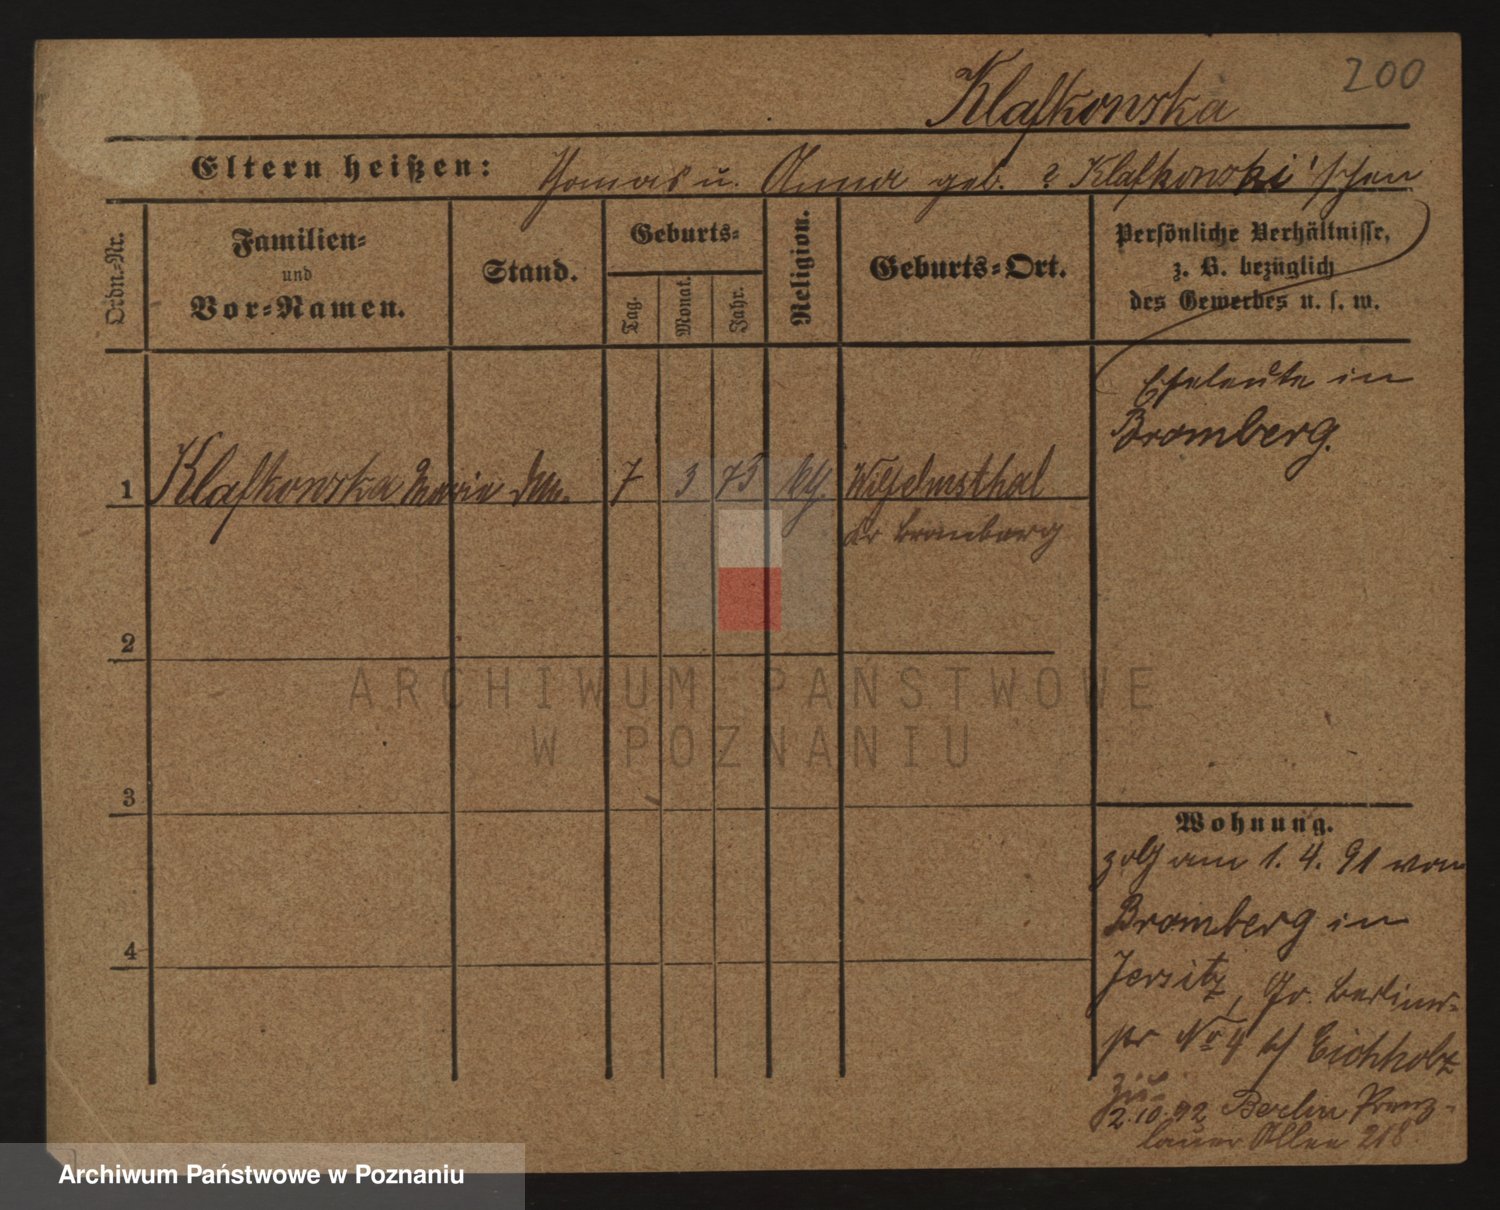 200
Klafkowska
Eltern heißen: Thomas u. Anna geb. ? Klafkowski'schen
Ordn=Nr.
Familien=
und
Vor=Namen.
Stand.
Geburts=
Tag.
Monat.
Jahr.
Religion.
Geburts=Ort.
Persönliche Verhältnisse,
z. B. bezüglich
des Gewerbes u. s. w.
Eheleute in
Bromberg.
1 Klafkowska Maria 7 3 75 Wilhelmsthal
Kr Bromberg
2
3
4
Wohnung.
am 1. 4. 91 von
Bromberg in
Jersitz, Gr. Berliner=
str No 4 b/ Eichholz
2.10.92 Berlin Prenz-
lauer Allee 218
ARCHIWUM PAŃSTWOWE
W POZNANIU
Archiwum Państwowe w Poznaniu